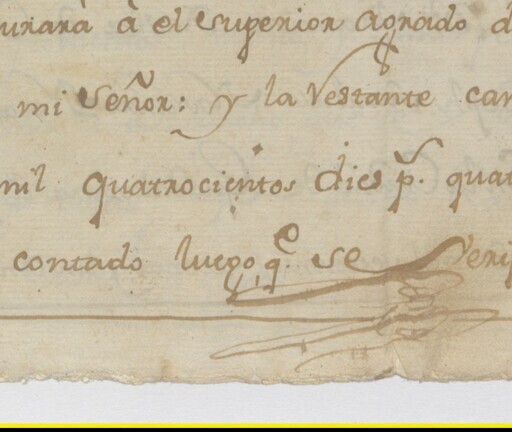 urará à el Superior agrado d
mi Señor: y la Restante can
mil quatrocientos dies p.s quat
contado luego q.e se Veri